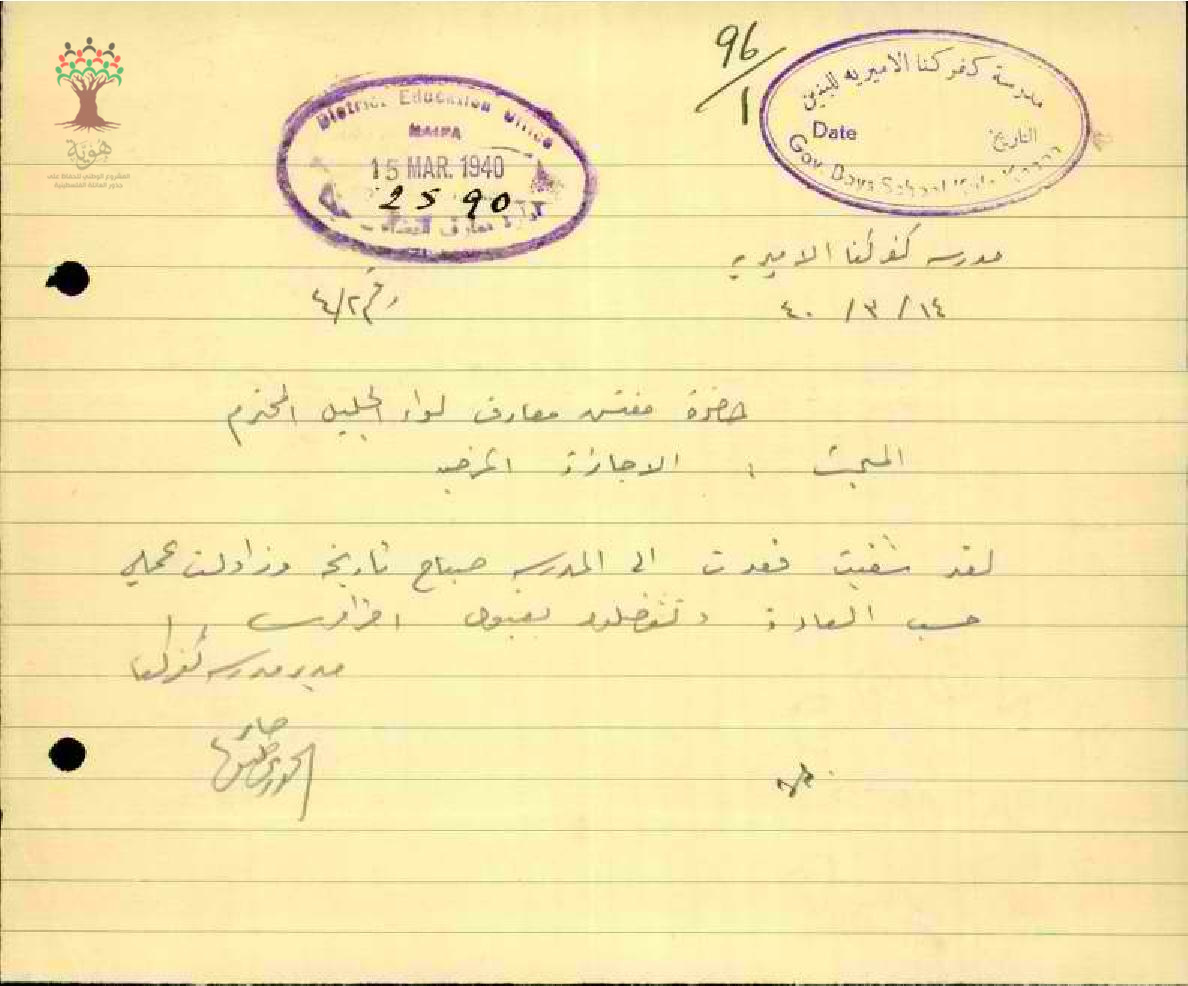 96/1
مدرسة كفر كنا الاميريه للبنين
Date التاريخ
Gov. Boys School Kafr Kanna
District Education Office
HAIFA
15 MAR. 1940
2590
هوية
المشروع الوطني للحفاظ على
جذور العائلة الفلسطينية
مدرسه كفركنا الاميريه
١٤ / ٣ / ٤٠
رقم ٤/٢
حضرة مفتش معارف لواء الجليل المحترم
المبحث : الاجازة المرضيه
لقد شفيت فعدت الى المدرسه صباح تاريخه وزاولت عملي
حسب العادة وتفضلوا بقبول احترامي
مدير مدرسه كفركنا
الخوري